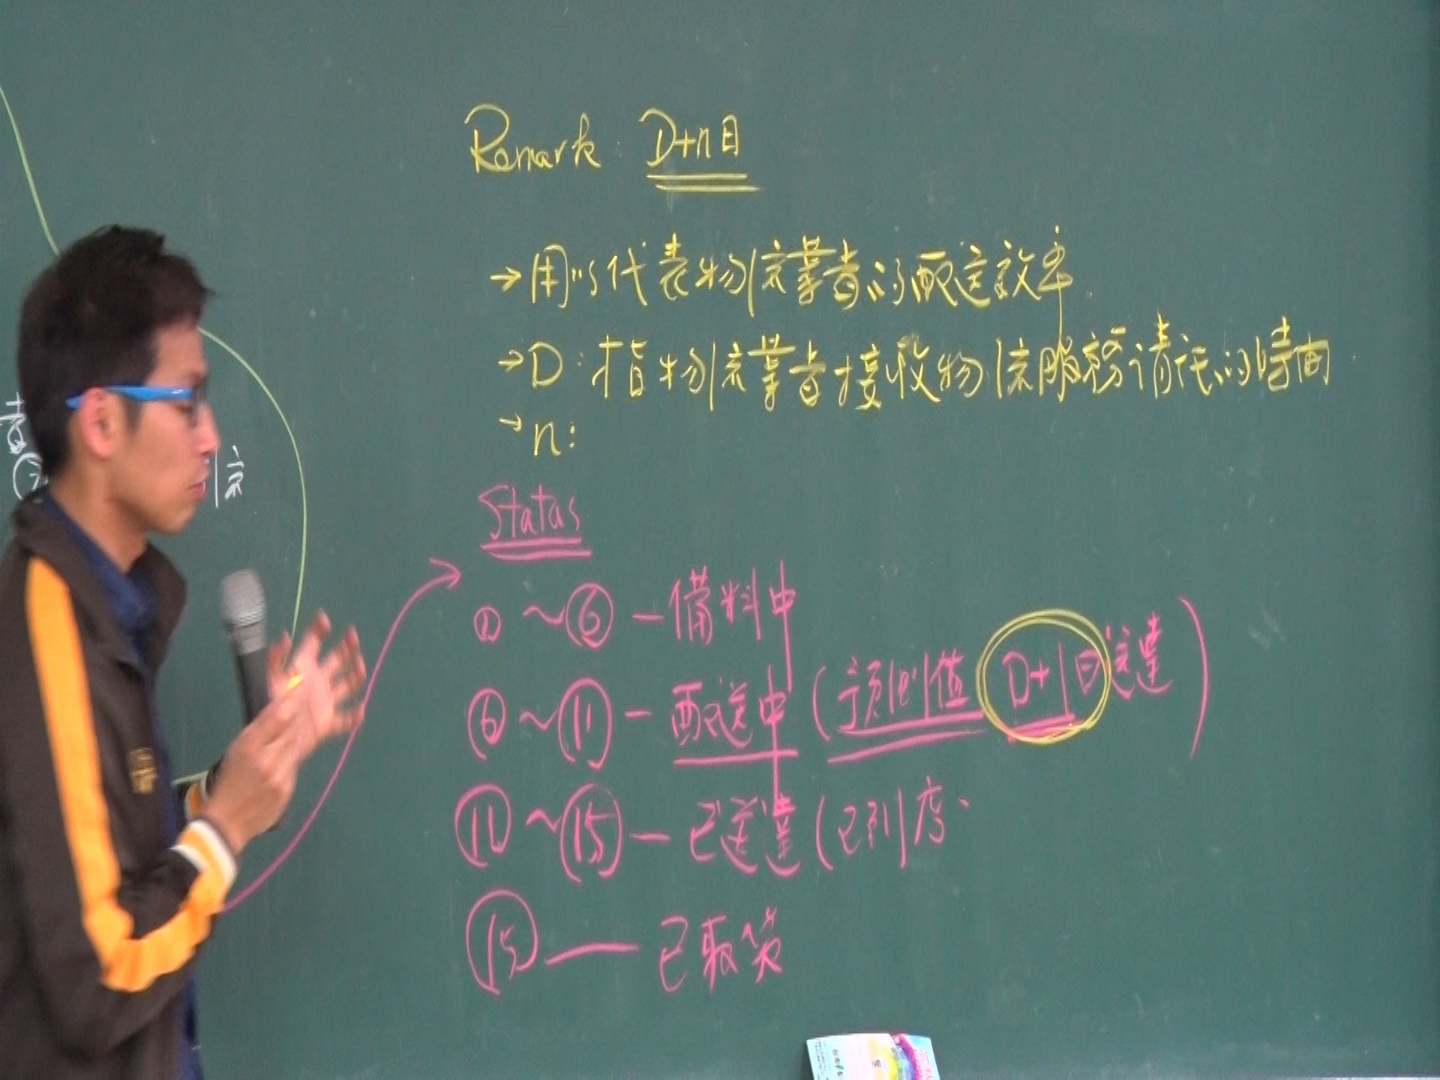 Remark: D+n日
→用以代表物流業者的配送效率
→D:指物流業者接收物流服務請託的時間
→n:
Status
~⑥—備料中
⑥~⑪—配送中(預測值 D+1日送達)
⑪~⑮—已送達(已到店
⑮—已取貨